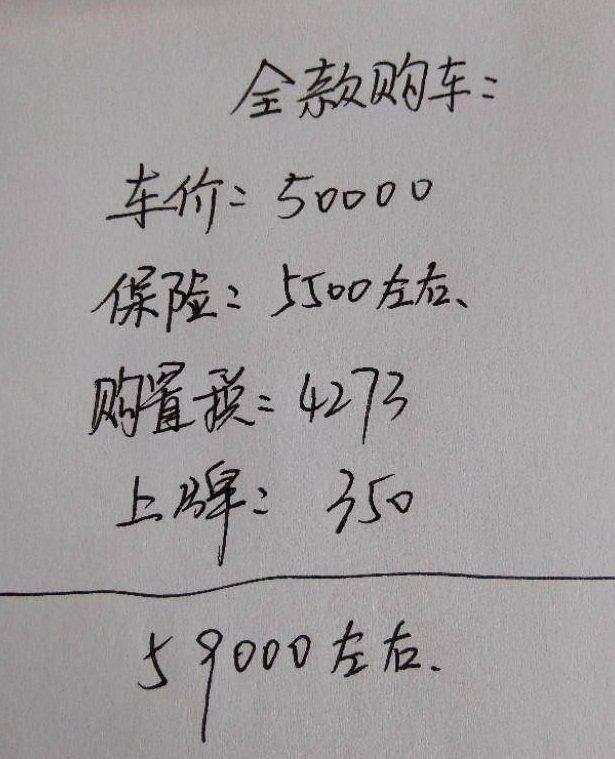 全款购车:
车价: 50000
保险: 5500左右、
购置税: 4273
上牌: 350
59000左右.